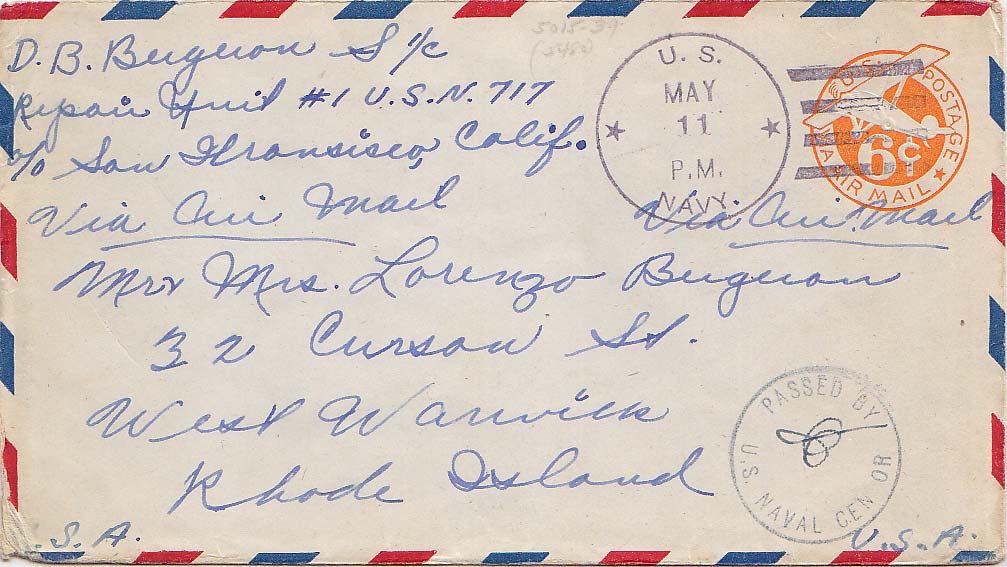 D. B. Bergeron S 1/c
Repair Unit #1 U.S.N. 717
c/o San Fransisco, Calif.
Via Air Mail
Via Air Mail
Mr & Mrs. Lorenzo Bergeron
32 Curson St.
West Warwick
Rhode Island
U.S.A.
.S.A.
5015-37
U.S.
MAY
11
P.M.
NAVY.
U.S. POSTAGE
6¢
AIR MAIL
PASSED BY
U.S. NAVAL CEN OR